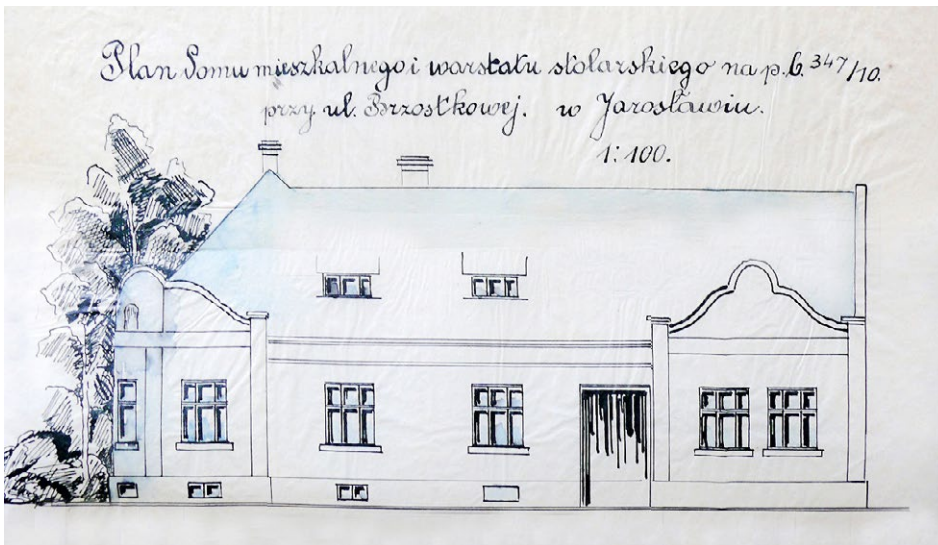 Plan Domu mieszkalnego i warstatu stolarskiego na p.b. 347/10.
przy ul. Brzostkowej. w Jarosławiu.
1:100.